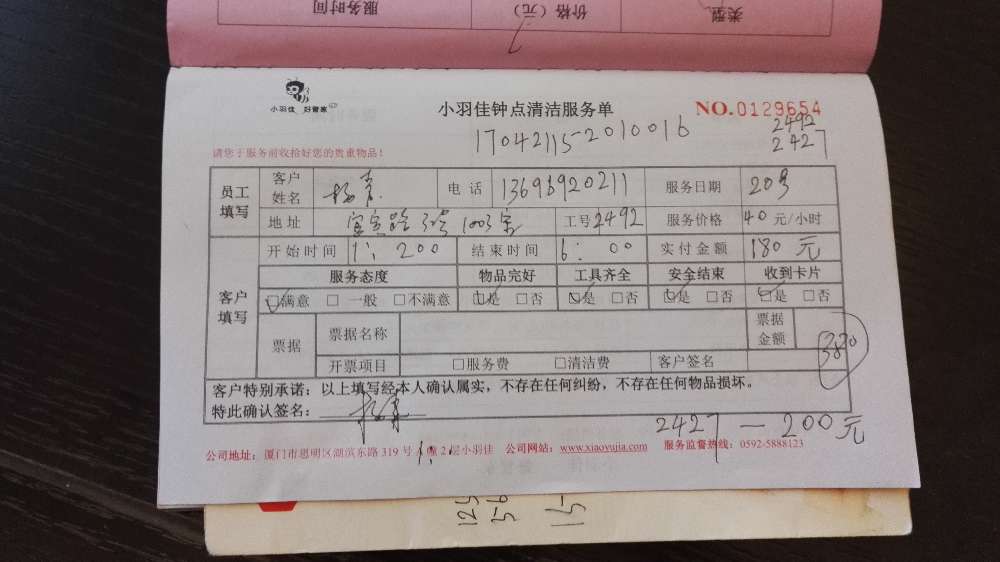 服务时间 价格（元） 类型
小羽佳 好管家
小羽佳钟点清洁服务单
NO.0129654
17042115-2010016
2492
2427
请您于服务前收拾好您的贵重物品！
员工填写 客户姓名 杨青 电话 13693920211 服务日期 20号
地址 1003室 工号 2492 服务价格 40 元/小时
客户填写 开始时间 1：200 结束时间 6：00 实付金额 180 元
服务态度 物品完好 工具齐全 安全结束 收到卡片
☑满意 □一般 □不满意 ☑是 □否 ☑是 □否 ☑是 □否 ☑是 □否
票据 票据名称 票据金额
380
开票项目 □服务费 □清洁费 客户签名
客户特别承诺：以上填写经本人确认属实，不存在任何纠纷，不存在任何物品损坏。
特此确认签名：
2427 — 200元
公司地址：厦门市思明区湖滨东路 319 号 幢 2 层小羽佳 公司网站：www.xiaoyujia.com 服务监督热线：0592-5888123